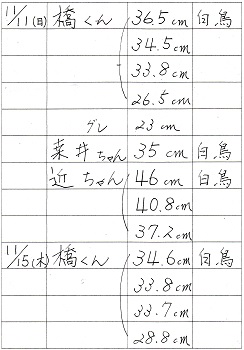 11/11(日) 橋くん 36.5cm 白鳥
34.5cm
33.8cm
26.5cm
グレ 23cm
菜井ちゃん 35cm 白鳥
近ちゃん 46cm 白鳥
40.8cm
37.2cm
11/15(木) 橋くん 34.6cm 白鳥
33.8cm
33.7cm
28.8cm